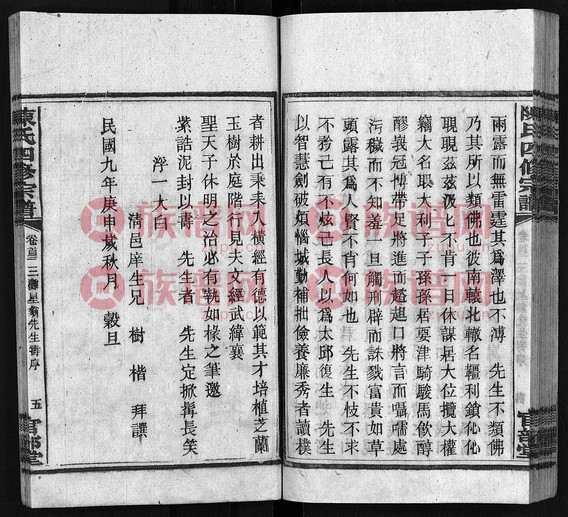 雨露而無雷霆其為澤也不溥　先生不類佛
乃其所以類佛也彼南轅北轍名韁利鎖化化
睍睍茲茲汲七不肯一日休謀居大位攬大權
竊大名取大利子子孫孫居要津騎駿馬飲醇
醪義冠博帶足將進而趑趄口將言而囁嚅處
汚穢而不知羞一旦觸刑辟而誅戮富貴如草
頭露其為人賢不肖何如也　先生不枝不求
不矜己長不炫己長人以為太邱復生　先生
以智慧劍破煩惱城勤補拙儉養廉秀者讀樸
者耕出秉耒入橫經有德以範其才培植芝蘭
玉樹於庭階行見夫文經武緯襄
聖天子休明之治必有執如椽之筆邀
紫誥泥封以壽　先生者　先生定掀髯長笑
浮一大白
清邑庠生兄　樹楷　拜譔
民國九年庚申歲秋月　穀旦
陳氏四修宗譜
卷首　三灘星翁先生壽序
五
陳氏四修宗譜
族譜网